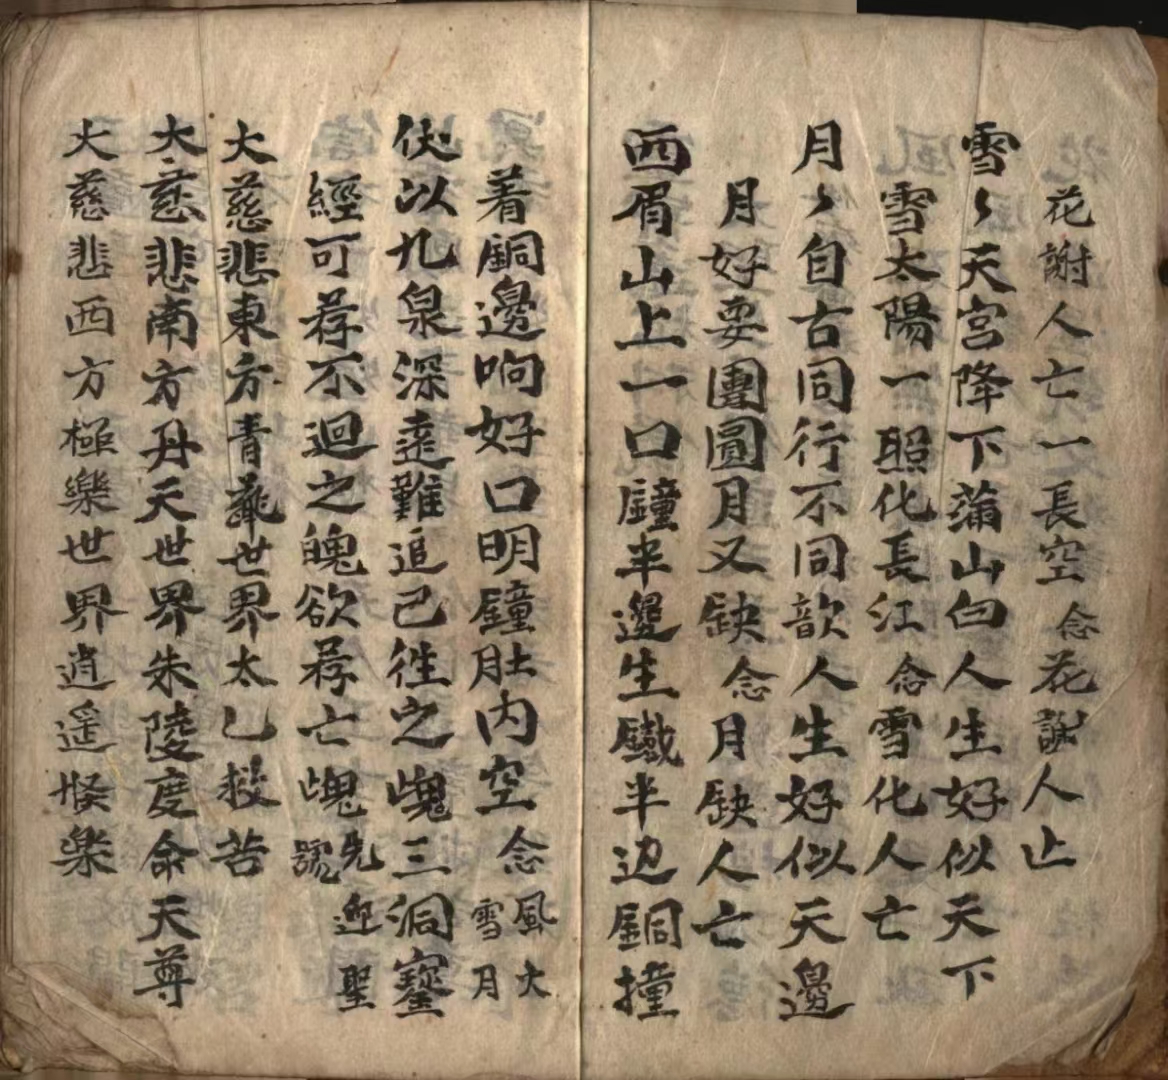 花謝人亡一長空念花謝人亡
雪〻天宮降下蒲山白人生好似天下
雪太陽一照化長江念雪化人亡
月〻自古同行不同歆人生好似天邊
月好要團圓月又缺念月缺人亡
西眉山上一口鐘半邊生鐵半边銅撞
着銅邊响好口明鐘肚内空念風雪大月
伏以九泉深遠難追已徃之魂三洞寳
經可荐不迴之魄欲荐亡魂先號迎聖
大慈悲東方青華世界太乙救苦
大慈悲南方丹天世界朱陵度命天尊
大慈悲西方極樂世界逍遥快樂